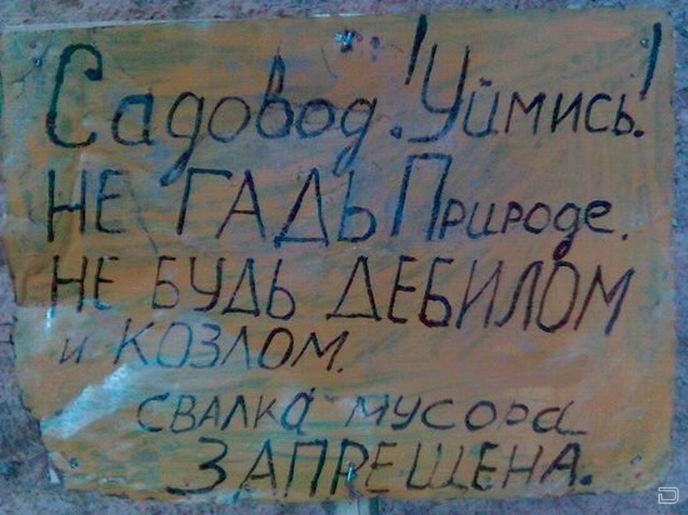 Садовод! Уймись!
НЕ ГАДЬ Природе.
НЕ БУДЬ ДЕБИЛОМ
и КОЗЛОМ.
СВАЛКА МУСОРА
ЗАПРЕЩЕНА.